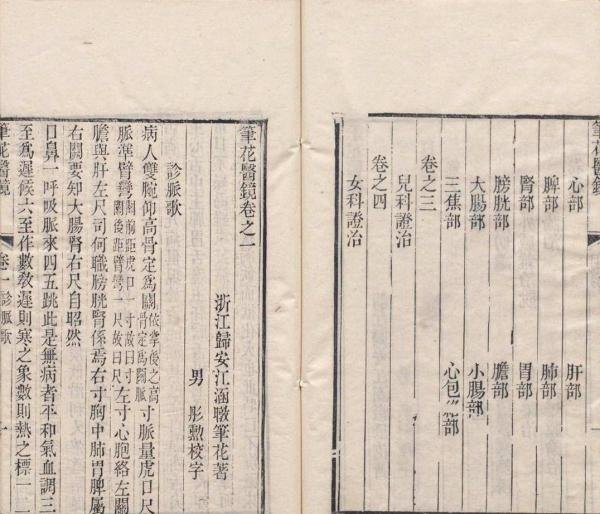 筆花醫鏡
心部　肝部
脾部　肺部
腎部　胃部
膀胱部　膽部
大腸部　小腸部
三焦部　心包絡部
卷之三
兒科證治
卷之四
女科證治
筆花醫鏡卷之一
浙江歸安江涵暾筆花著
男　彤勳校字
診脈歌
病人雙腕仰高骨定為關依掌後之高骨定為關脈寸脈量虎口尺
脈準臂彎關前距虎口一寸故曰寸關後距臂彎一尺故曰尺左寸心胞絡左關
膽與肝左尺司何職膀胱腎係焉右寸胸中肺胃脾屬
右關要知大腸腎右尺自昭然
口鼻一呼吸脈來四五跳此是無病者平和氣血調三
至為遲候六至作數教遲則寒之象數則熱之標一二
筆花醫鏡　卷一診脈歌　一